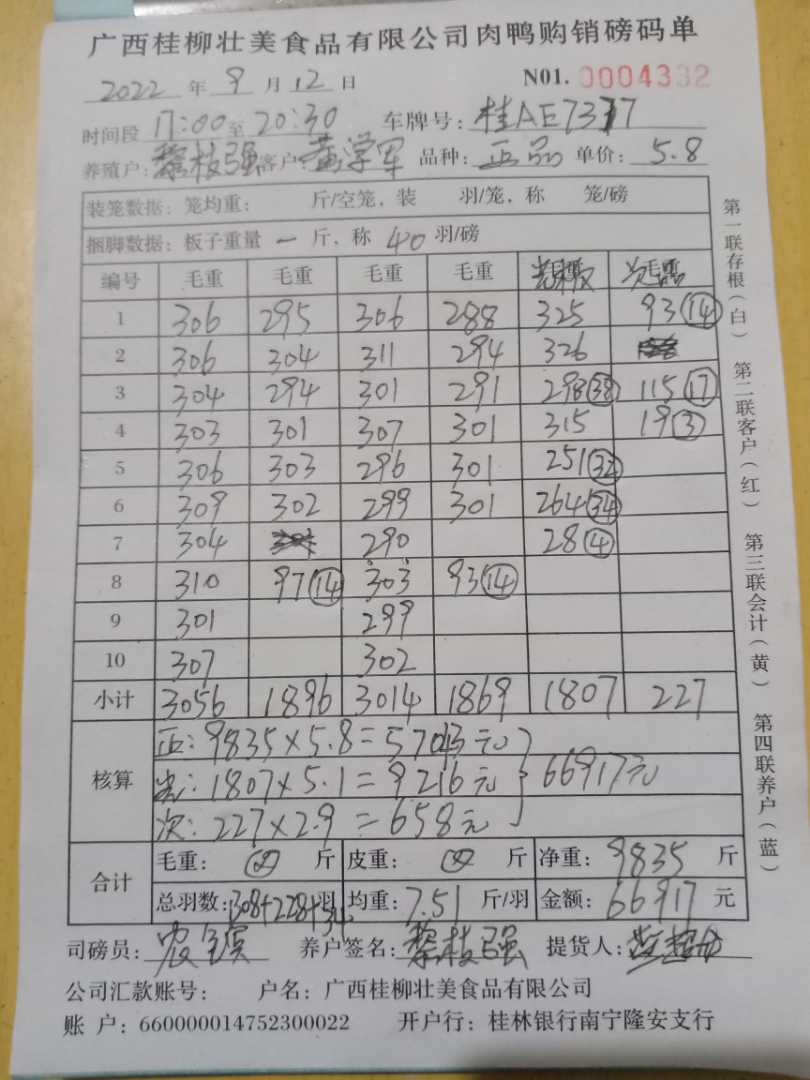 广西桂柳壮美食品有限公司肉鸭购销磅码单
2022 年 9 月 12 日 N01. 0004332
时间段 17:00 至 20:30 车牌号: 桂AE7337
养殖户: 黎枝强 客户: 黄学军 品种: 正品 单价: 5.8
装笼数据: 笼均重: 斤/空笼, 装 羽/笼, 称 笼/磅
捆脚数据: 板子重量 一 斤, 称 40 羽/磅
编号 毛重 毛重 毛重 毛重
1 306 295 306 288 325 93 (14)
2 306 304 311 294 326
3 304 294 301 291 298 (38) 115 (17)
4 303 301 307 301 315 19 (3)
5 306 303 296 301 251 (32)
6 309 302 299 301 264 (34)
7 304 290 28 (4)
8 310 97 (14) 303 93 (14)
9 301 299
10 307 302
小计 3056 1896 3014 1869 1807 227
核算
正: 9835×5.8=57043元
光: 1807×5.1=9216元 } 66917元
次: 227×2.9=658元
合计
毛重: 斤 皮重: 斤 净重: 9835 斤
总羽数: 1308+228+34 羽 均重: 7.51 斤/羽 金额: 66917 元
司磅员: 养户签名: 黎枝强 提货人:
公司汇款账号: 户名: 广西桂柳壮美食品有限公司
账 户: 660000014752300022 开户行: 桂林银行南宁隆安支行
第一联存根(白) 第二联客户(红) 第三联会计(黄) 第四联养户(蓝)